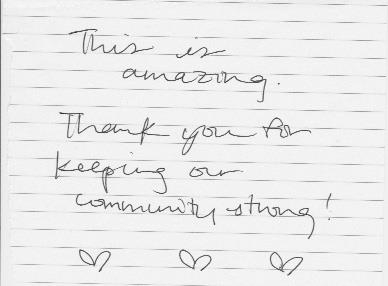 This is
amazing.
Thank you for
keeping our
community strong!